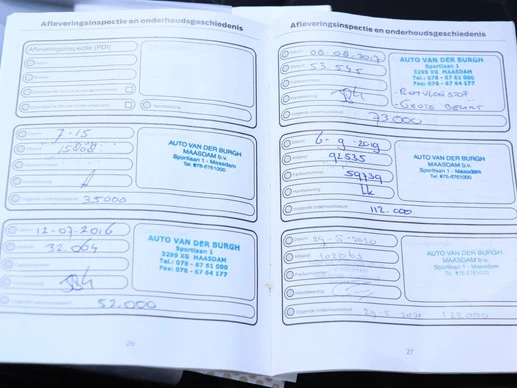 Afleveringsinspectie en onderhoudsgeschiedenis
Afleveringsinspectie (PDI)
Datum
7-15
15000
35000
AUTO VAN DER BURGH
MAASDAM b.v.
Sportlaan 1 - Maasdam
Tel. 078-6761000
Datum 12-07-2016
Afstand 32.064
52.000
AUTO VAN DER BURGH
Sportlaan 1
3299 XG MAASDAM
Tel.: 078 - 67 61 000
Fax: 078 - 67 64 177
26
Afleveringsinspectie en onderhoudsgeschiedenis
Datum 08-08-2017
53.545
73000
AUTO VAN DER BURGH
Sportlaan 1
3299 XG MAASDAM
Tel.: 078 - 67 61 000
Fax: 078 - 67 64 177
- REMVLOEISTOF
- GROTE BEURT
Datum 6-9-2019
Afstand 92535
Factuurnummer 59739
Handtekening
Volgende onderhoudsbeurt 112.000
AUTO VAN DER BURGH
MAASDAM b.v.
Sportlaan 1 - Maasdam
Tel. 078-6761000
Datum 29-5-2020
Afstand
Factuurnummer
Handtekening
Volgende onderhoudsbeurt 29-5-2021 122.000
AUTO VAN DER BURGH
MAASDAM b.v.
Sportlaan 1 - Maasdam
Tel. 078-6761000
27